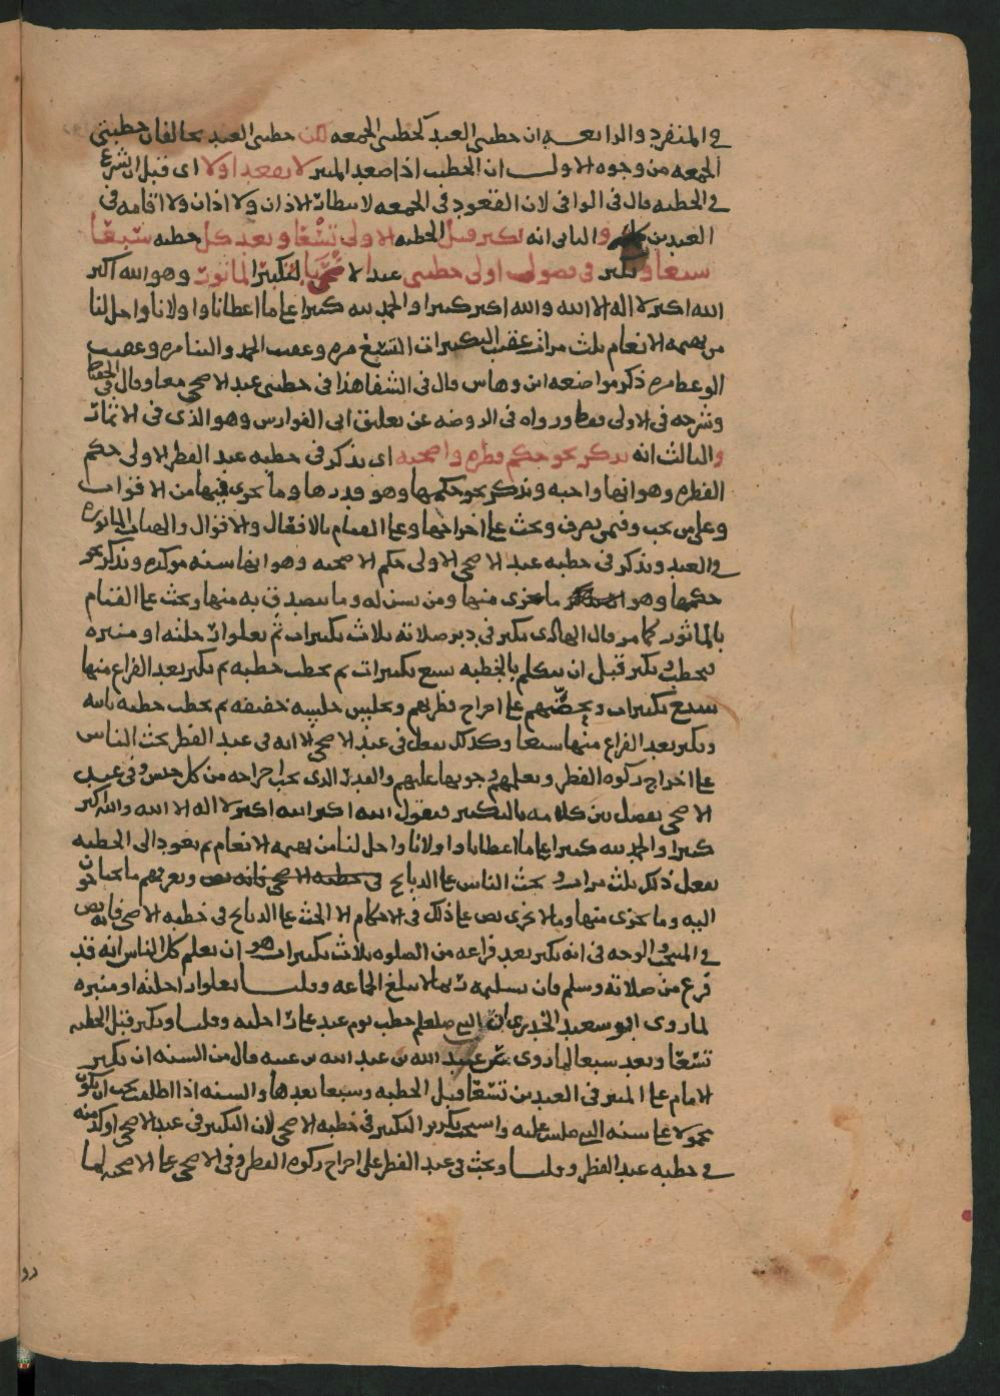 في المنفرد والرابعه ان خطبتي العيد كخطبتي الجمعه لكن خطبتي العيد يخالفان خطبتي
الجمعه من وجوه الاول ان الخطيب اذا صعد المنبر لا يقعد اولا اي قبل ان يشرع
في الخطبه قال في الوافي لان القعود في الجمعه لانتظار الاذان ولا اذان ولا اقامه في
العيدين والثاني انه يكبر قبل الخطبه الاولى تسعا وبعد كل خطبه سبعا
سبعا ويكبر في فصول اولى خطبتي عيد الاضحى التكبير الماثور وهو الله اكبر
الله اكبر لا اله الا الله والله اكبر كبيرا والحمد لله كثيرا على ما اعطانا واولانا واحل لنا
من بهيمه الانعام ثلث مرات عقيب التكبيرات التسع مره وعقيب الحمد والثنا مره وعقيب
الوعظ مره ذكر مواضعه ابن وهاس قال في الشفا هذا في خطبتي عيد الاضحى معا وقال في
وشرحه في الاولى فقط ورواه في الروضه عن تعليق ابي الفوارس وهو الذي في الاثمار
والثالث انه يذكر نحو حكم فطره واضحيه اي يذكر في خطبه عيد الفطر الاولى حكم
الفطره وهو انها واجبه ويذكر نحو حكمها وهو قدرها وما يجزي فيها من الاقوات
وعلى من يجب وفيمن يصرف ويحث على اخراجها وعلى القيام بالافعال والاقوال والهيات الماثوره
في العيد ويذكر في خطبه عيد الاضحى الاولى حكم الاضحيه وهو انها سنه موكده ويذكر نحو
حكمها وهو ما يجزي منها ومن تسن له وما يتصدق به منها ويحث على القيام
بالماثور كما مر قال الهادي يكبر في دبر صلاته ثلاث تكبيرات ثم يعلو راحلته او منبره
فيخطب ويكبر قبل ان يتكلم بالخطبه تسع تكبيرات ثم يخطب خطبه ثم يكبر بعد الفراغ منها
سبع تكبيرات ويحضهم على اخراج فطرهم ويجلس جلسه خفيفه ثم يخطب خطبه ثانيه
ويكبر بعد الفراغ منها سبعا وكذلك يفعل في عيد الاضحى الا انه في عيد الفطر يحث الناس
على اخراج زكوه الفطر ويعلمهم وجوبها عليهم والقدر الذي يجب اخراجه من كل جنس وفي عيد
الاضحى يفصل بين كلامه بالتكبير فيقول الله اكبر الله اكبر لا اله الا الله والله اكبر
كبيرا والحمد لله كثيرا على ما اعطانا واولانا واحل لنا من بهيمه الانعام ثم يعود الى الخطبه
يفعل ذلك ثلث مرات ويحث الناس على الذبائح في خطبه الاضحى فانه نص ويعرفهم ما يحتاجون
اليه وما يجزي منها وما لا يجزي نص على ذلك في الاحكام الا الحث على الذبائح في خطبه الاضحى فانه نص
في المنتخب والوجه في انه يكبر بعد فراغه من الصلوه ثلاث تكبيرات هو ان يعلم كل الناس انه قد
فرغ من صلاته وسلم فان تسليمه ربما لا يبلغ الجماعه وقلنا يعلو راحلته او منبره
لما روى ابو سعيد الخدري ان النبي صلعم خطب يوم عيد على راحلته وقلنا ويكبر قبل الخطبه
تسعا وبعد سبعا لما روي عن عبيد الله بن عبد الله بن عتبه قال من السنه ان يكبر
الامام على المنبر في العيدين تسعا قبل الخطبه وسبعا بعدها والسنه اذا اطلقت يجب ان يكون
محموله على سنه النبي صلى عليه واستحب تكرير التكبير في خطبه الاضحى لان التكبير في عيد الاضحى اوكد منه
في خطبه عيد الفطر وقلنا ويحث في عيد الفطر على اخراج زكوه الفطر وفي الاضحى على الاضحيه لما